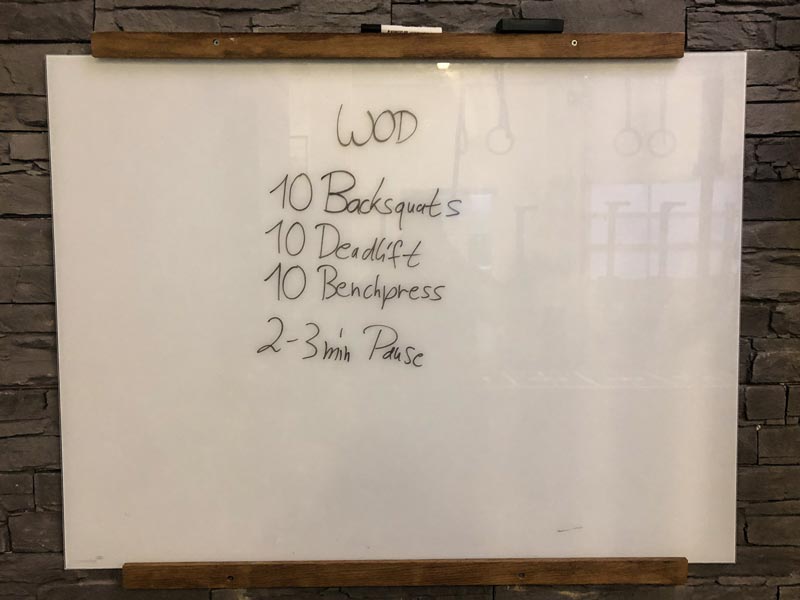 WOD
10 Backsquats
10 Deadlift
10 Benchpress
2-3 min Pause